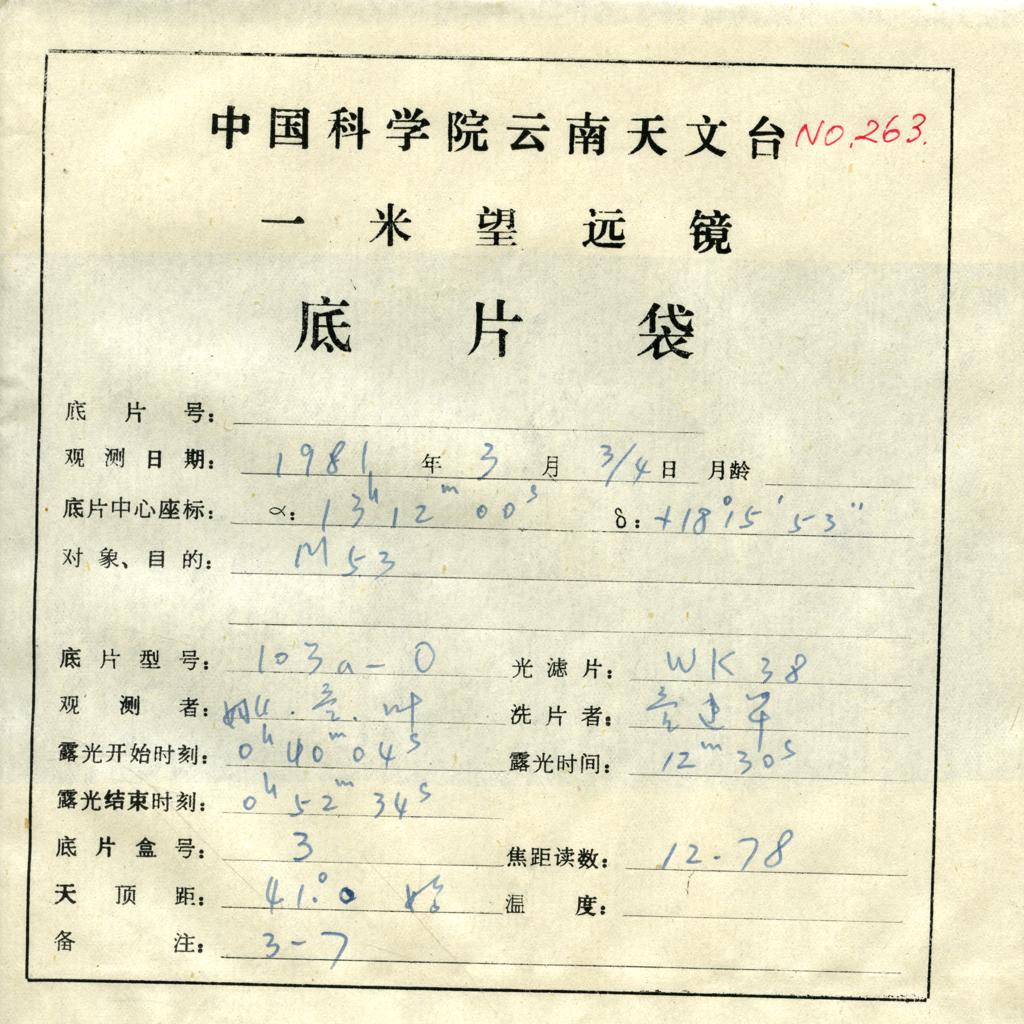 中国科学院云南天文台 NO.263.
一米望远镜
底片袋
底片号:
观测日期: 1981年3月3/4日 月龄
底片中心座标: α: 13h12m00s δ: +18°15′53″
对象、目的: M53
底片型号: 103a-O 光滤片: WK38
观测者: 叶 洗片者:
露光开始时刻: 0h40m04s 露光时间: 12m30s
露光结束时刻: 0h52m34s
底片盒号: 3 焦距读数: 12.78
天顶距: 41°.0 始 温度:
备注: 3-7